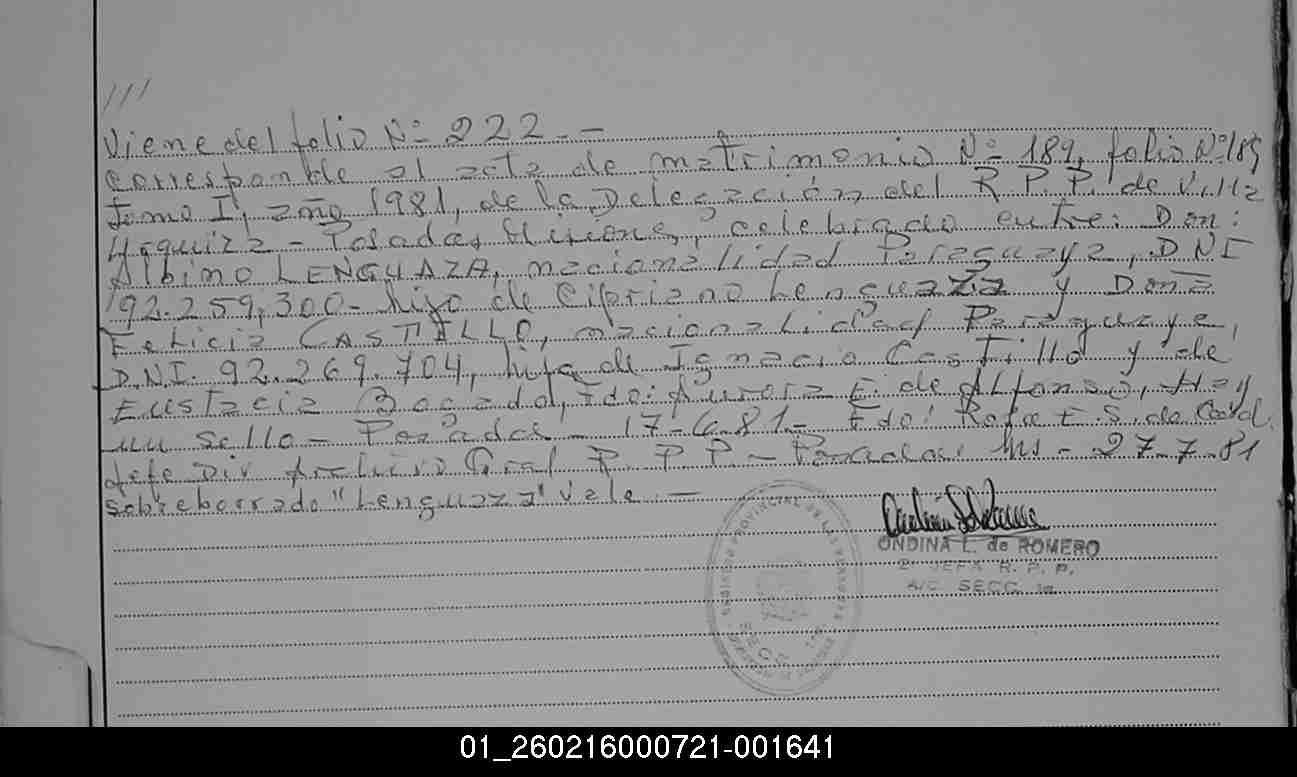 ///
Viene del folio Nº 222. -
Corresponde al acta de matrimonio Nº 189, folio Nº 189
Tomo I, año 1981, de la Delegación del R. P. P. de Villa
Urquiza - Posadas, Misiones, celebrado entre: Don:
Albino LENGUAZA, nacionalidad Paraguaya, DNI
92.259.300- hijo de Cipriano Lenguaza y Doña
Felicia CASTILLO, nacionalidad Paraguaya,
D.N.I. 92.269.704, hija de Ignacio Castillo y de
Eustacia Bogado, Fdo: Aurora E. de Alfonso, Hay
un sello - Posadas - 17-6-81- Fdo: Rosa E. S. de
Jefe Div Archivo Gral R. P. P. - Posadas, Ms - 27-7-81
sobreborrado "Lenguaza" Vale. -
ONDINA L. de ROMERO
2º JEFA R. P. P.
A/C. SECC. 1a.
REGISTRO PROVINCIAL DE LAS PERSONAS
SECC. 1a.
01_260216000721-001641